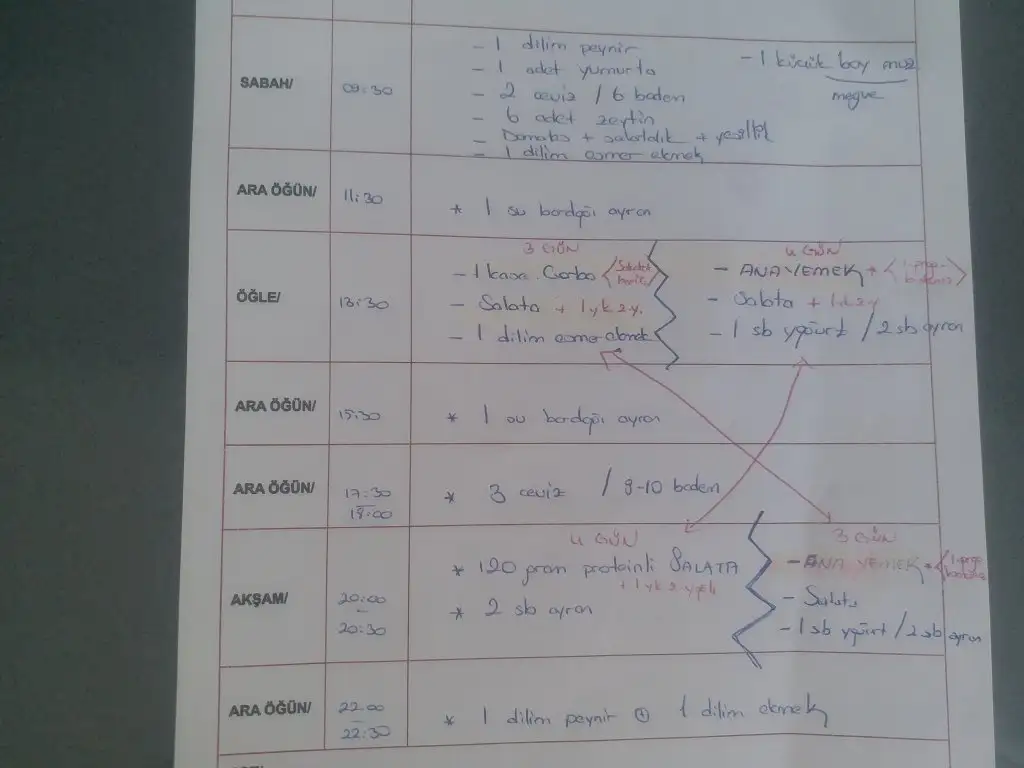 SABAH/
09:30
- 1 dilim peynir
- 1 adet yumurta
- 2 ceviz / 6 badem
- 6 adet zeytin
- Domates + salatalık + yeşillik
- 1 dilim esmer ekmek
- 1 küçük boy muz
meyve
ARA ÖĞÜN/
11:30
* 1 su bardağı ayran
ÖĞLE/
13:30
3 GÜN
- 1 kase Çorba
- Salata + 1 yk z.y.
- 1 dilim esmer ekmek
4 GÜN
- ANA YEMEK +
- Salata + 1 yk z.y
- 1 sb yoğurt / 2 sb ayran
ARA ÖĞÜN/
15:30
* 1 su bardağı ayran
ARA ÖĞÜN/
17:30
18:00
* 3 ceviz / 9-10 badem
AKŞAM/
20:00
20:30
4 GÜN
* 120 gram proteinli SALATA
+ 1 yk z.yağlı
* 2 sb ayran
3 GÜN
- ANA YEMEK
- Salata
- 1 sb yoğurt / 2 sb ayran
ARA ÖĞÜN/
22:00
22:30
* 1 dilim peynir + 1 dilim ekmek